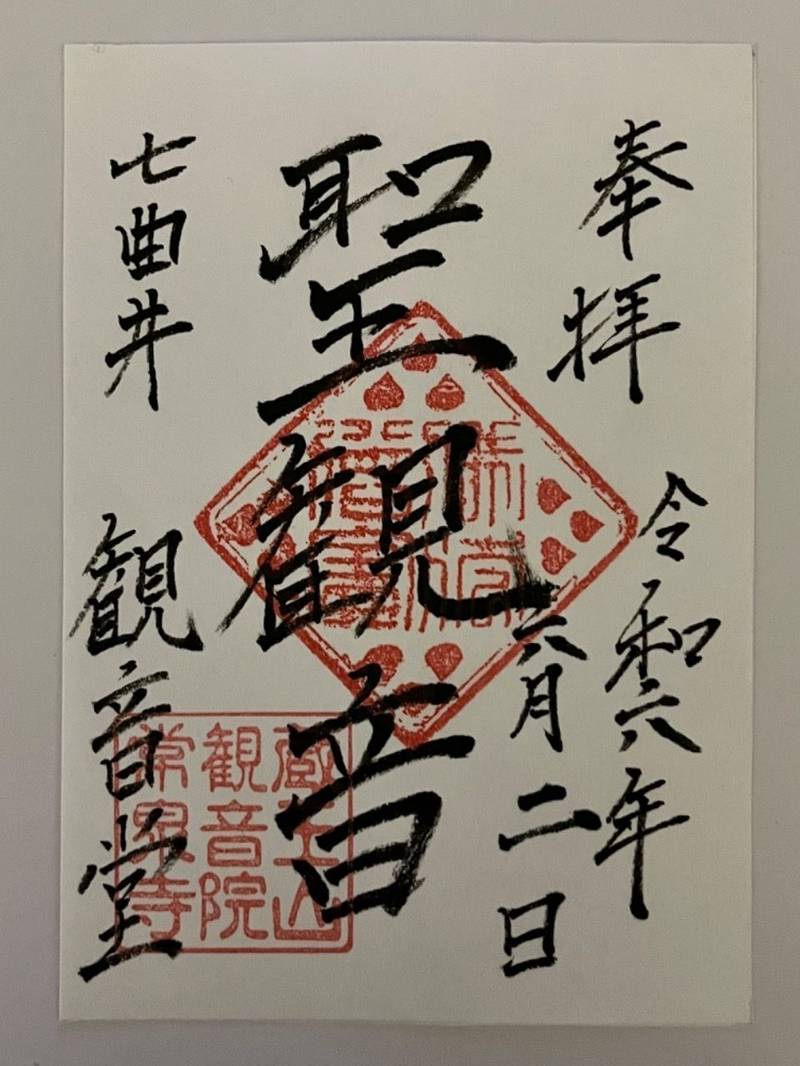 奉拝
令和六年
六月二日
聖観音
七曲井
観音堂
蔵王山
観音院
常泉寺